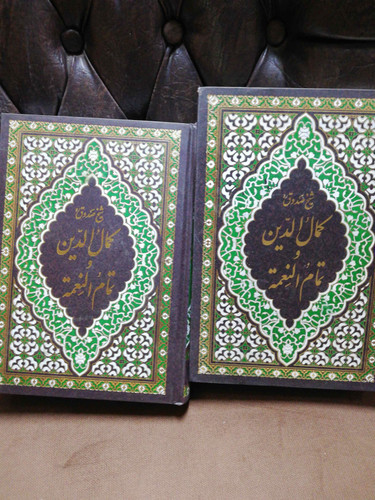 شیخ صدوق
کمال الدین
و
تمام النعمة
شیخ صدوق
کمال الدین
و
تمام النعمة